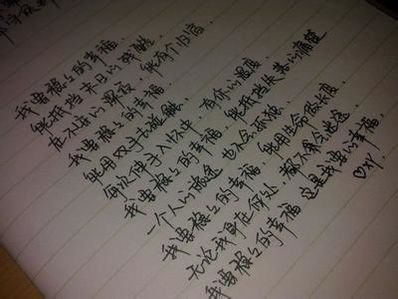 我要稳稳的幸福.
能抵挡末日的残酷.
在不安的深夜. 能有个归宿.
我要稳稳的幸福
能用双手去碰触.
每次伸手入怀中. 有你的温度.
我要稳稳的幸福. 能抵挡失落的痛楚
一个人的路途 也不会孤独.
我要稳稳的幸福. 能用生命做长度.
无论我身在何处. 都不会迷途.
我要稳稳的幸福 这是我要的幸福.
♡XY.